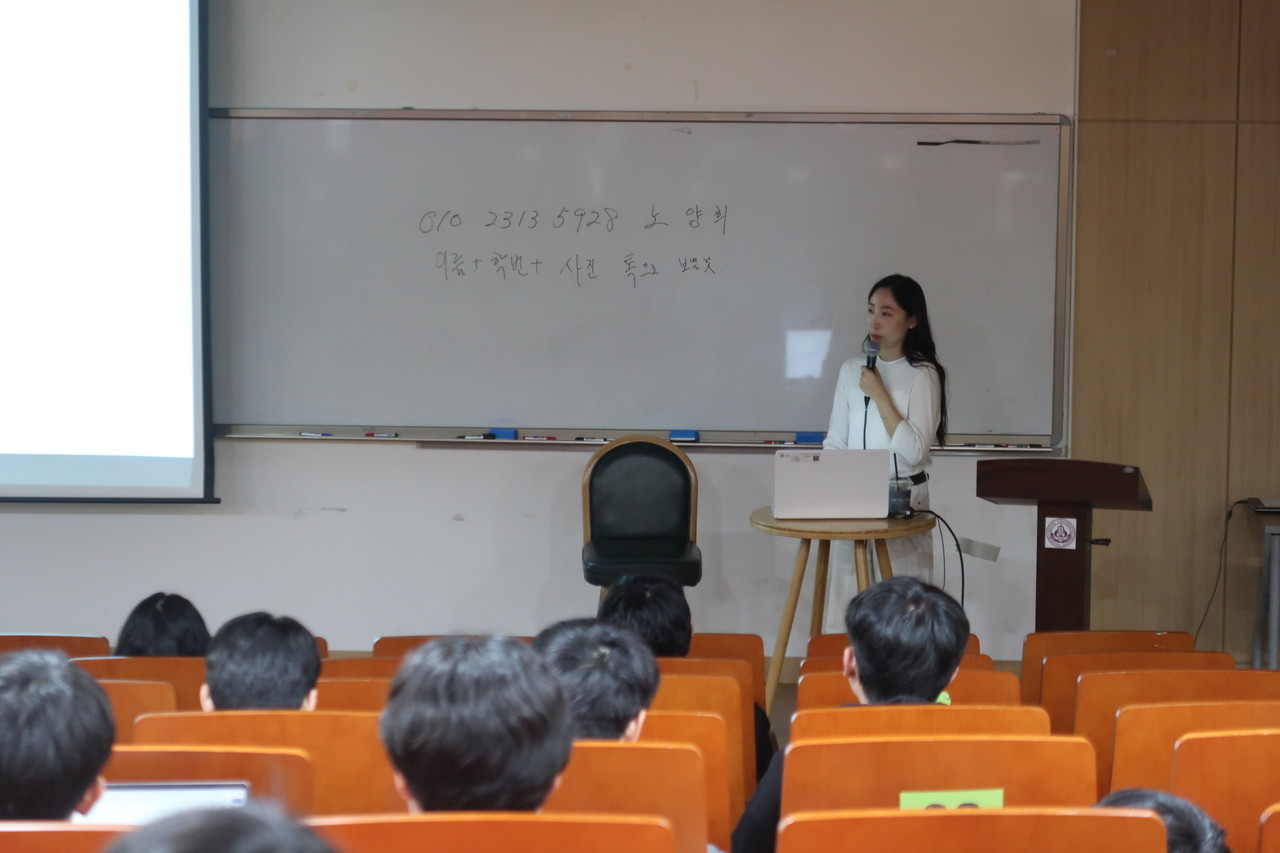 010 2313 5928 노 양희
이름+학번+ 사진 톡으로